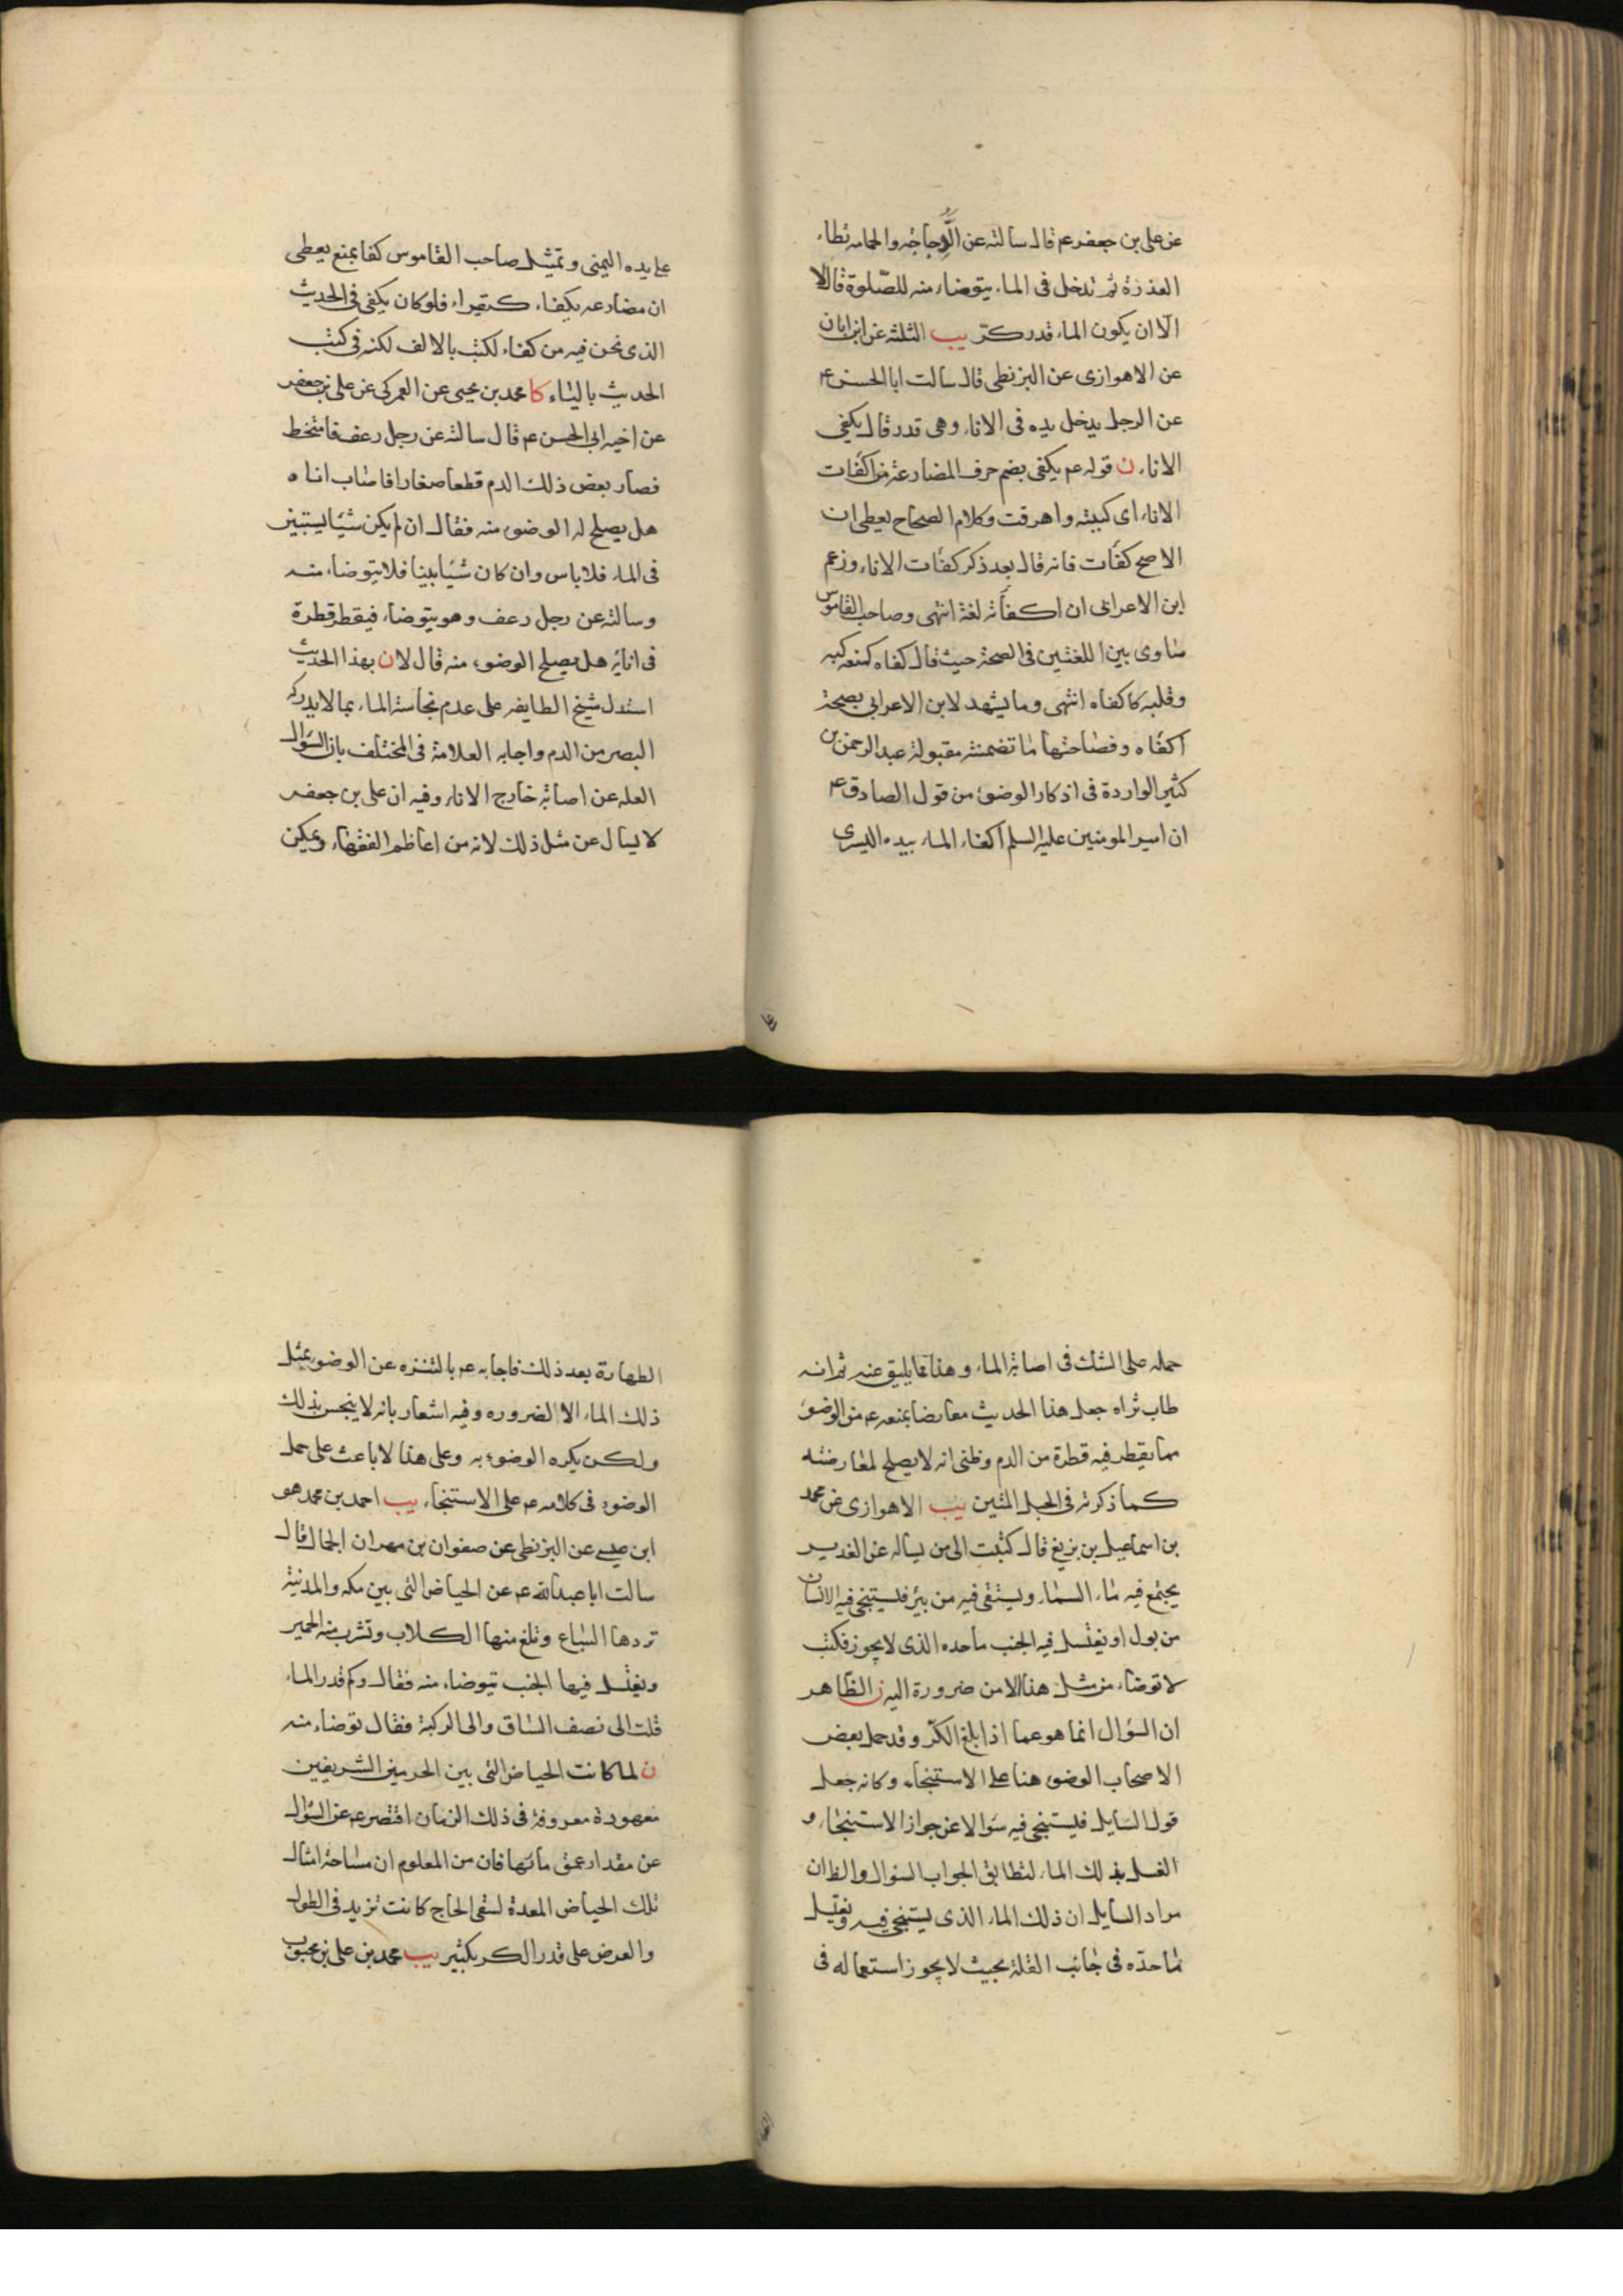 عن علی بن جعفر عم قال سالته عن الدجاجه والحمامه تطاء
العذرة ثم تدخل فی الماء یتوضاء منه للصلوة قال لا
الا ان یکون الماء قدر کر یب الثلثه عن ابن ابان
عن الاهوازی عن البزنطی قال سالت ابا الحسن عم
عن الرجل یدخل یده فی الاناء وهی قدر قال یکفی
الاناء ن قوله عم یکفی بضم حرف المضارعة من اکفات
الاناء ای کببته واهرقت وکلام الصحاح یعطی ان
الاصح کفات فانه قال بعد ذکر کفات الاناء وزعم
ابن الاعرابی ان اکفأته لغة انتهی وصاحب القاموس
ساوی بین اللغتین فی الصحة حیث قال کفاه کمنعه کبه
وقلبه کاکفاه انتهی وما یشهد لابن الاعرابی بصحة
اکفاه وفصاحتها ما تضمنته مقبولة عبد الرحمن بن
کثیر الواردة فی اذکار الوضوء من قول الصادق عم
ان امیر المومنین علیه السلم اکفاء الماء بیده الیسری
علی یده الیمنی وتمثیل صاحب القاموس کفا بمنع یعطی
ان مضارعه یکفاء کیقراء فلو کان یکفی فی الحدیث
الذی نحن فیه من کفاء لکتب بالالف لکنه فی کتب
الحدیث بالیاء کا محمد بن یحیی عن العمرکی عن علی بن جعفر
عن اخیه ابی الحسن عم قال سالته عن رجل رعف فامتخط
فصار بعض ذلك الدم قطعا صغارا فاصاب اناه
هل یصلح له الوضوء منه فقال ان لم یکن شیئا یستبین
فی الماء فلا باس وان کان شیئا بینا فلا یتوضاء منه
وسالته عن رجل رعف وهو یتوضاء فیقطر قطرة
فی انائه هل یصلح الوضوء منه قال لا ن بهذا الحدیث
استدل شیخ الطایفه علی عدم نجاسة الماء بما لا یدرکه
البصر من الدم واجابه العلامة فی المختلف بان السؤال
لعله عن اصابة خارج الاناء وفیه ان علی بن جعفر
لا یسال عن مثل ذلك لانه من اعاظم الفقهاء ویمکن
حمله علی الشك فی اصابة الماء وهذا مما یلیق عنه ثم انه
طاب ثراه جعل هذا الحدیث معارضا بمنعه عم من الوضوء
مما یقطر فیه قطرة من الدم وظنی انه لا یصلح لمعارضته
کما ذکرته فی الحبل المتین یب الاهوازی عن محمد
بن اسماعیل بن بزیع قال کتبت الی من یساله عن الغدیر
یجتمع فیه ماء السماء ویستقی فیه من بئر فیستنجی فیه الانسان
من بول او یغتسل فیه الجنب ما حده الذی لا یجوز فکتب
لا توضاء من مثل هذا الا من ضرورة الیه ن الظاهر
ان السؤال انما هو عما اذا بلغ الکر وقد حمل بعض
الاصحاب الوضوء هنا علی الاستنجاء وکانه جعل
قول السایل فیستنجی فیه سؤالا عن جواز الاستنجاء و
الغسل بذلك الماء لتطابق الجواب السؤال والظ ان
مراد السایل ان ذلك الماء الذی یستنجی فیه ویغتسل
ما حده فی جانب القلة بحیث لا یجوز استعماله فی
الطهارة بعد ذلك فاجابه عم بالتنزه عن الوضوء بمثل
ذلك الماء الا لضروره وفیه اشعار بانه لا ینجس بذلك
ولکن یکره الوضوء به وعلی هذا لا باعث علی حمل
الوضوء فی کلامه عم علی الاستنجاء یب احمد بن محمد هو
ابن عیسی عن البزنطی عن صفوان بن مهران الجمال قال
سالت ابا عبدالله عم عن الحیاض التی بین مکه والمدینة
تردها السباع وتلغ منها الکلاب وتشرب منه الحمیر
ویغتسل فیها الجنب یتوضاء منه فقال وکم قدر الماء
قلت الی نصف الساق والی الرکبة فقال توضاء منه
ن لما کانت الحیاض التی بین الحرمین الشریفین
معهودة معروفة فی ذلك الزمان اقتصر عم عن السؤال
عن مقدار عمق مائها فان من المعلوم ان مساحة امثال
تلك الحیاض المعدة لسقی الحاج کانت تزید فی الطول
والعرض علی قدر الکر بکثیر یب محمد بن علی بن محبوب